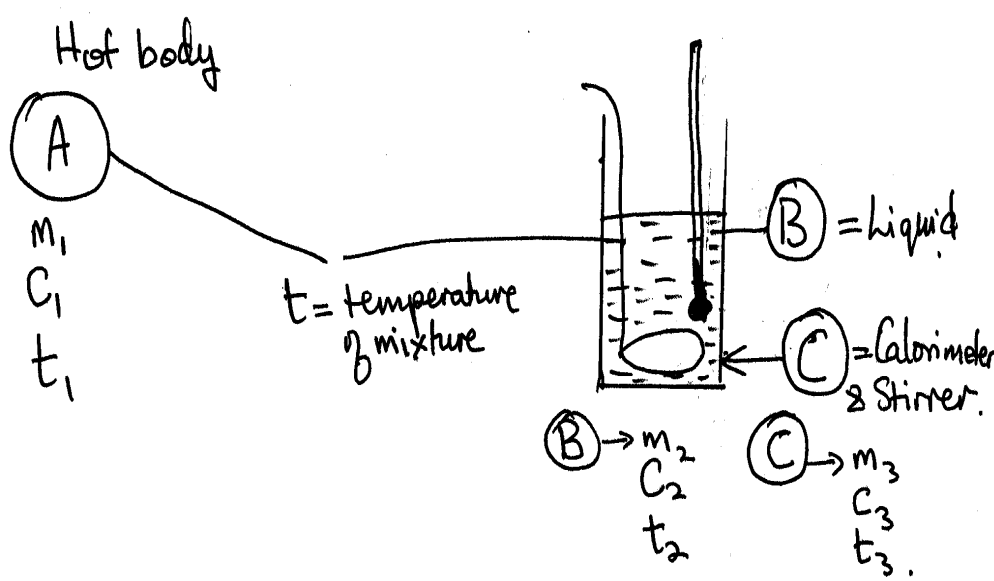 Hot body
A
m₁
C₁
t₁
t = temperature
of mixture
B = Liquid.
C = Calorimeter
& Stirrer.
B → m₂
C₂
t₂
C → m₃
C₃
t₃.